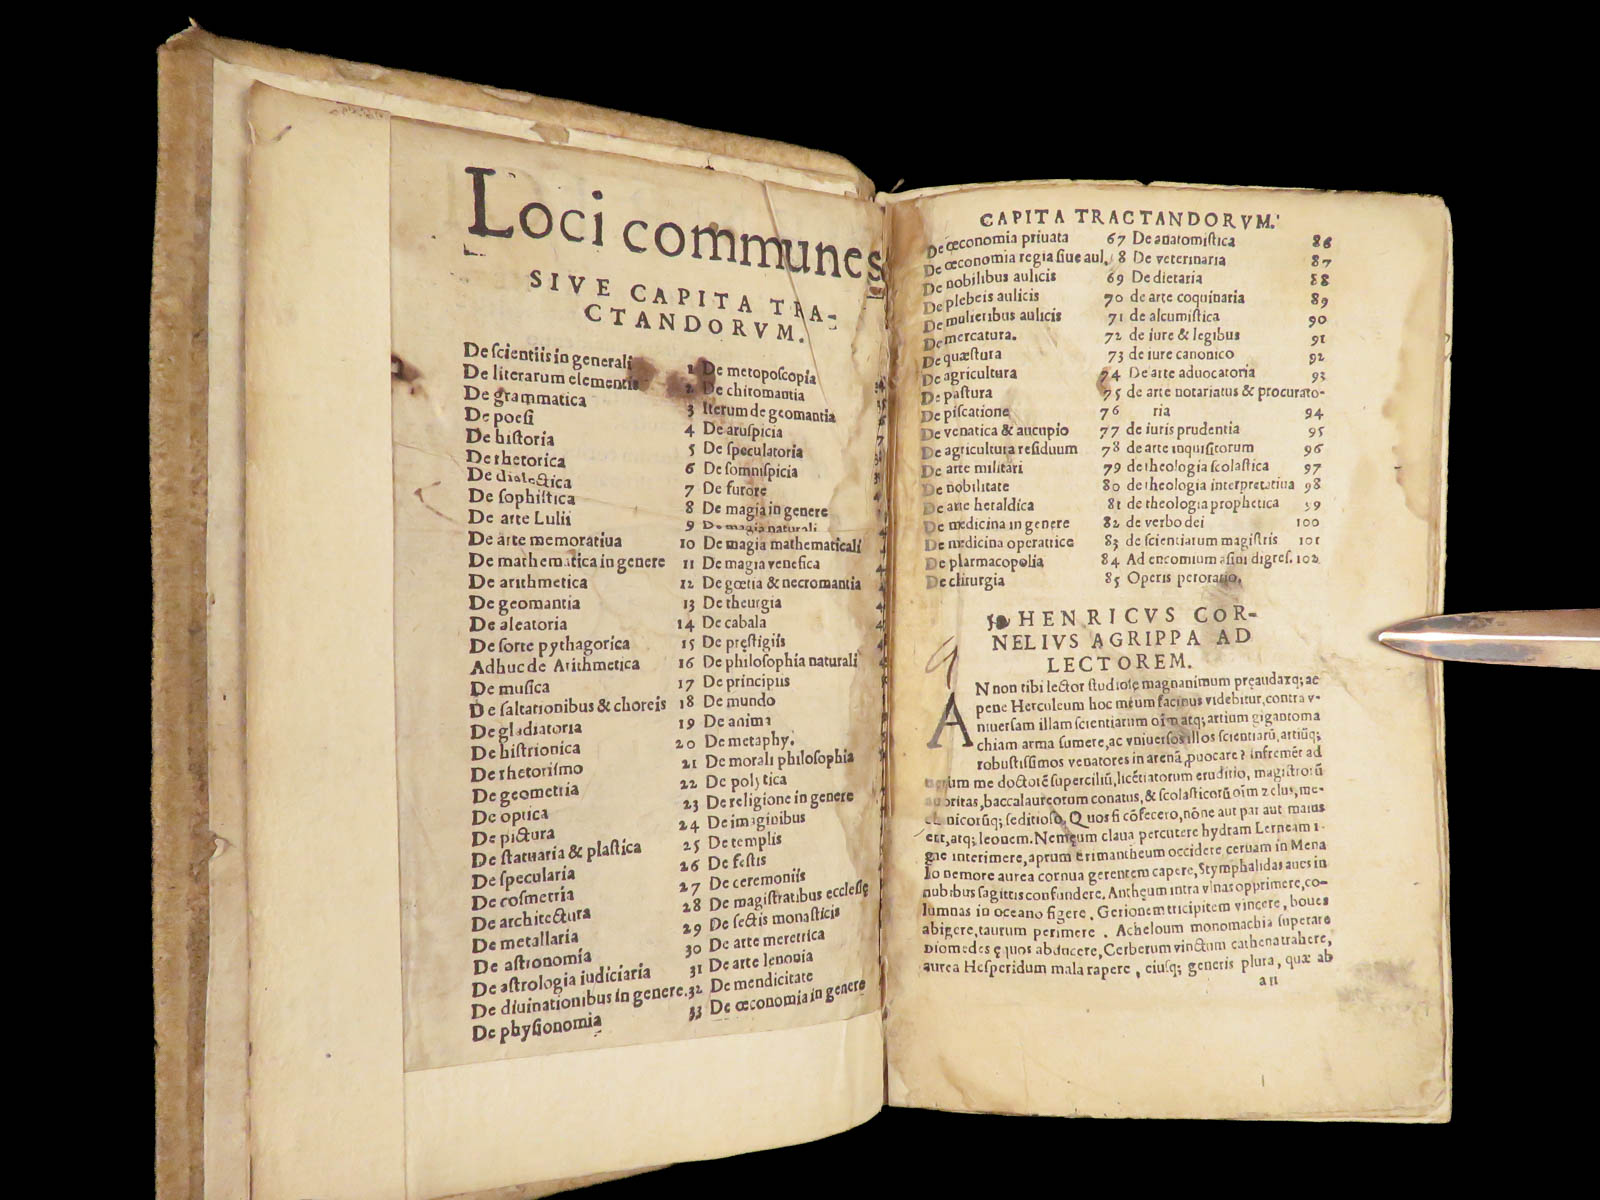 Loci communes
SIVE CAPITA TRA-
CTANDORVM.
De scientiis in generali 1
De literarum elementis 2
De grammatica 3
De poesi 4
De historia 5
De rhetorica 6
De dialectica 7
De sophistica 8
De arte Lulii 9
De arte memoratiua 10
De mathematica in genere 11
De arithmetica 12
De geomantia 13
De aleatoria 14
De sorte pythagorica 15
Adhuc de Arithmetica 16
De musica 17
De saltationibus & choreis 18
De gladiatoria 19
De histrionica 20
De rhetorismo 21
De geometria 22
De optica 23
De pictura 24
De statuaria & plastica 25
De specularia 26
De cosmetria 27
De architectura 28
De metallaria 29
De astronomia 30
De astrologia iudiciaria 31
De diuinationibus in genere. 32
De physionomia 33
De metoposcopia
De chiromantia
Iterum de geomantia
De aruspicia
De speculatoria
De somnispicia
De furore
De magia in genere
De magia naturali
De magia mathematicali
De magia venefica
De gœtia & necromantia
De theurgia
De cabala
De pręstigiis
De philosophia naturali
De principiis
De mundo
De anima
De metaphy.
De morali philosophia
De polytica
De religione in genere
De imaginibus
De templis
De festis
De ceremoniis
De magistratibus ecclesię
De sectis monasticis
De arte meretrica
De arte lenonia
De mendicitate
De œconomia in genere
CAPITA TRACTANDORVM.
De œconomia priuata 67
De œconomia regia siue aul. 8
De nobilibus aulicis 69
De plebeis aulicis 70
De mulieribus aulicis 71
De mercatura. 72
De quæstura 73
De agricultura 74
De pastura 75
De piscatione 76
De venatica & aucupio 77
De agricultura residuum 78
De arte militari 79
De nobilitate 80
De arte heraldica 81
De medicina in genere 82
De medicina operatrice 83
De pharmacopolia 84
De chirurgia 85
De anatomistica 86
De veterinaria 87
De dietaria 88
de arte coquinaria 89
de alcumistica 90
de iure & legibus 91
de iure canonico 92
De arte aduocatoria 93
de arte notariatus & procurato-
ria 94
de iuris prudentia 95
de arte inquisitorum 96
de theologia scolastica 97
de theologia interpretatiua 98
de theologia prophetica 99
de verbo dei 100
de scientiarum magistris 101
Ad encomium asini digres. 102
Operis peroratio.
HENRICVS COR-
NELIVS AGRIPPA AD
LECTOREM.
AN non tibi lector studiose magnanimum pręaudaxq; ac
pene Herculeum hoc meum facinus videbitur, contra v-
niuersam illam scientiarum oīm atq; artium gigantoma
chiam arma sumere, ac vniuersos illos scientiarū, artiūq;
robustissimos venatores in arenā, puocare? infremēt ad
uersum me doctorē superciliū, licētiatorum eruditio, magistrorū
autoritas, baccalaureorum conatus, & scolasticorū oīm zelus, me-
chanicorūq; seditioso. Quos si cōfecero, nōne aut par aut maius
erit, atq; leonem. Nemęum claua percutere hydram Lerneam i-
gne interimere, aprum erimantheum occidere, ceruam in Mena
lo nemore aurea cornua gerentem capere, Stymphalidas aues in
nubibus sagittis confundere. Anthęum intra vlnas opprimere, co-
lumnas in oceano figere. Gerionem tricipitem vincere, boues
abigere, taurum perimere. Acheloum monomachia superare
Diomedes ęquos abducere, Cerberum vinctum cathena trahere,
aurea Hesperidum mala rapere, eiusq; generis plura, quæ ab
a ii